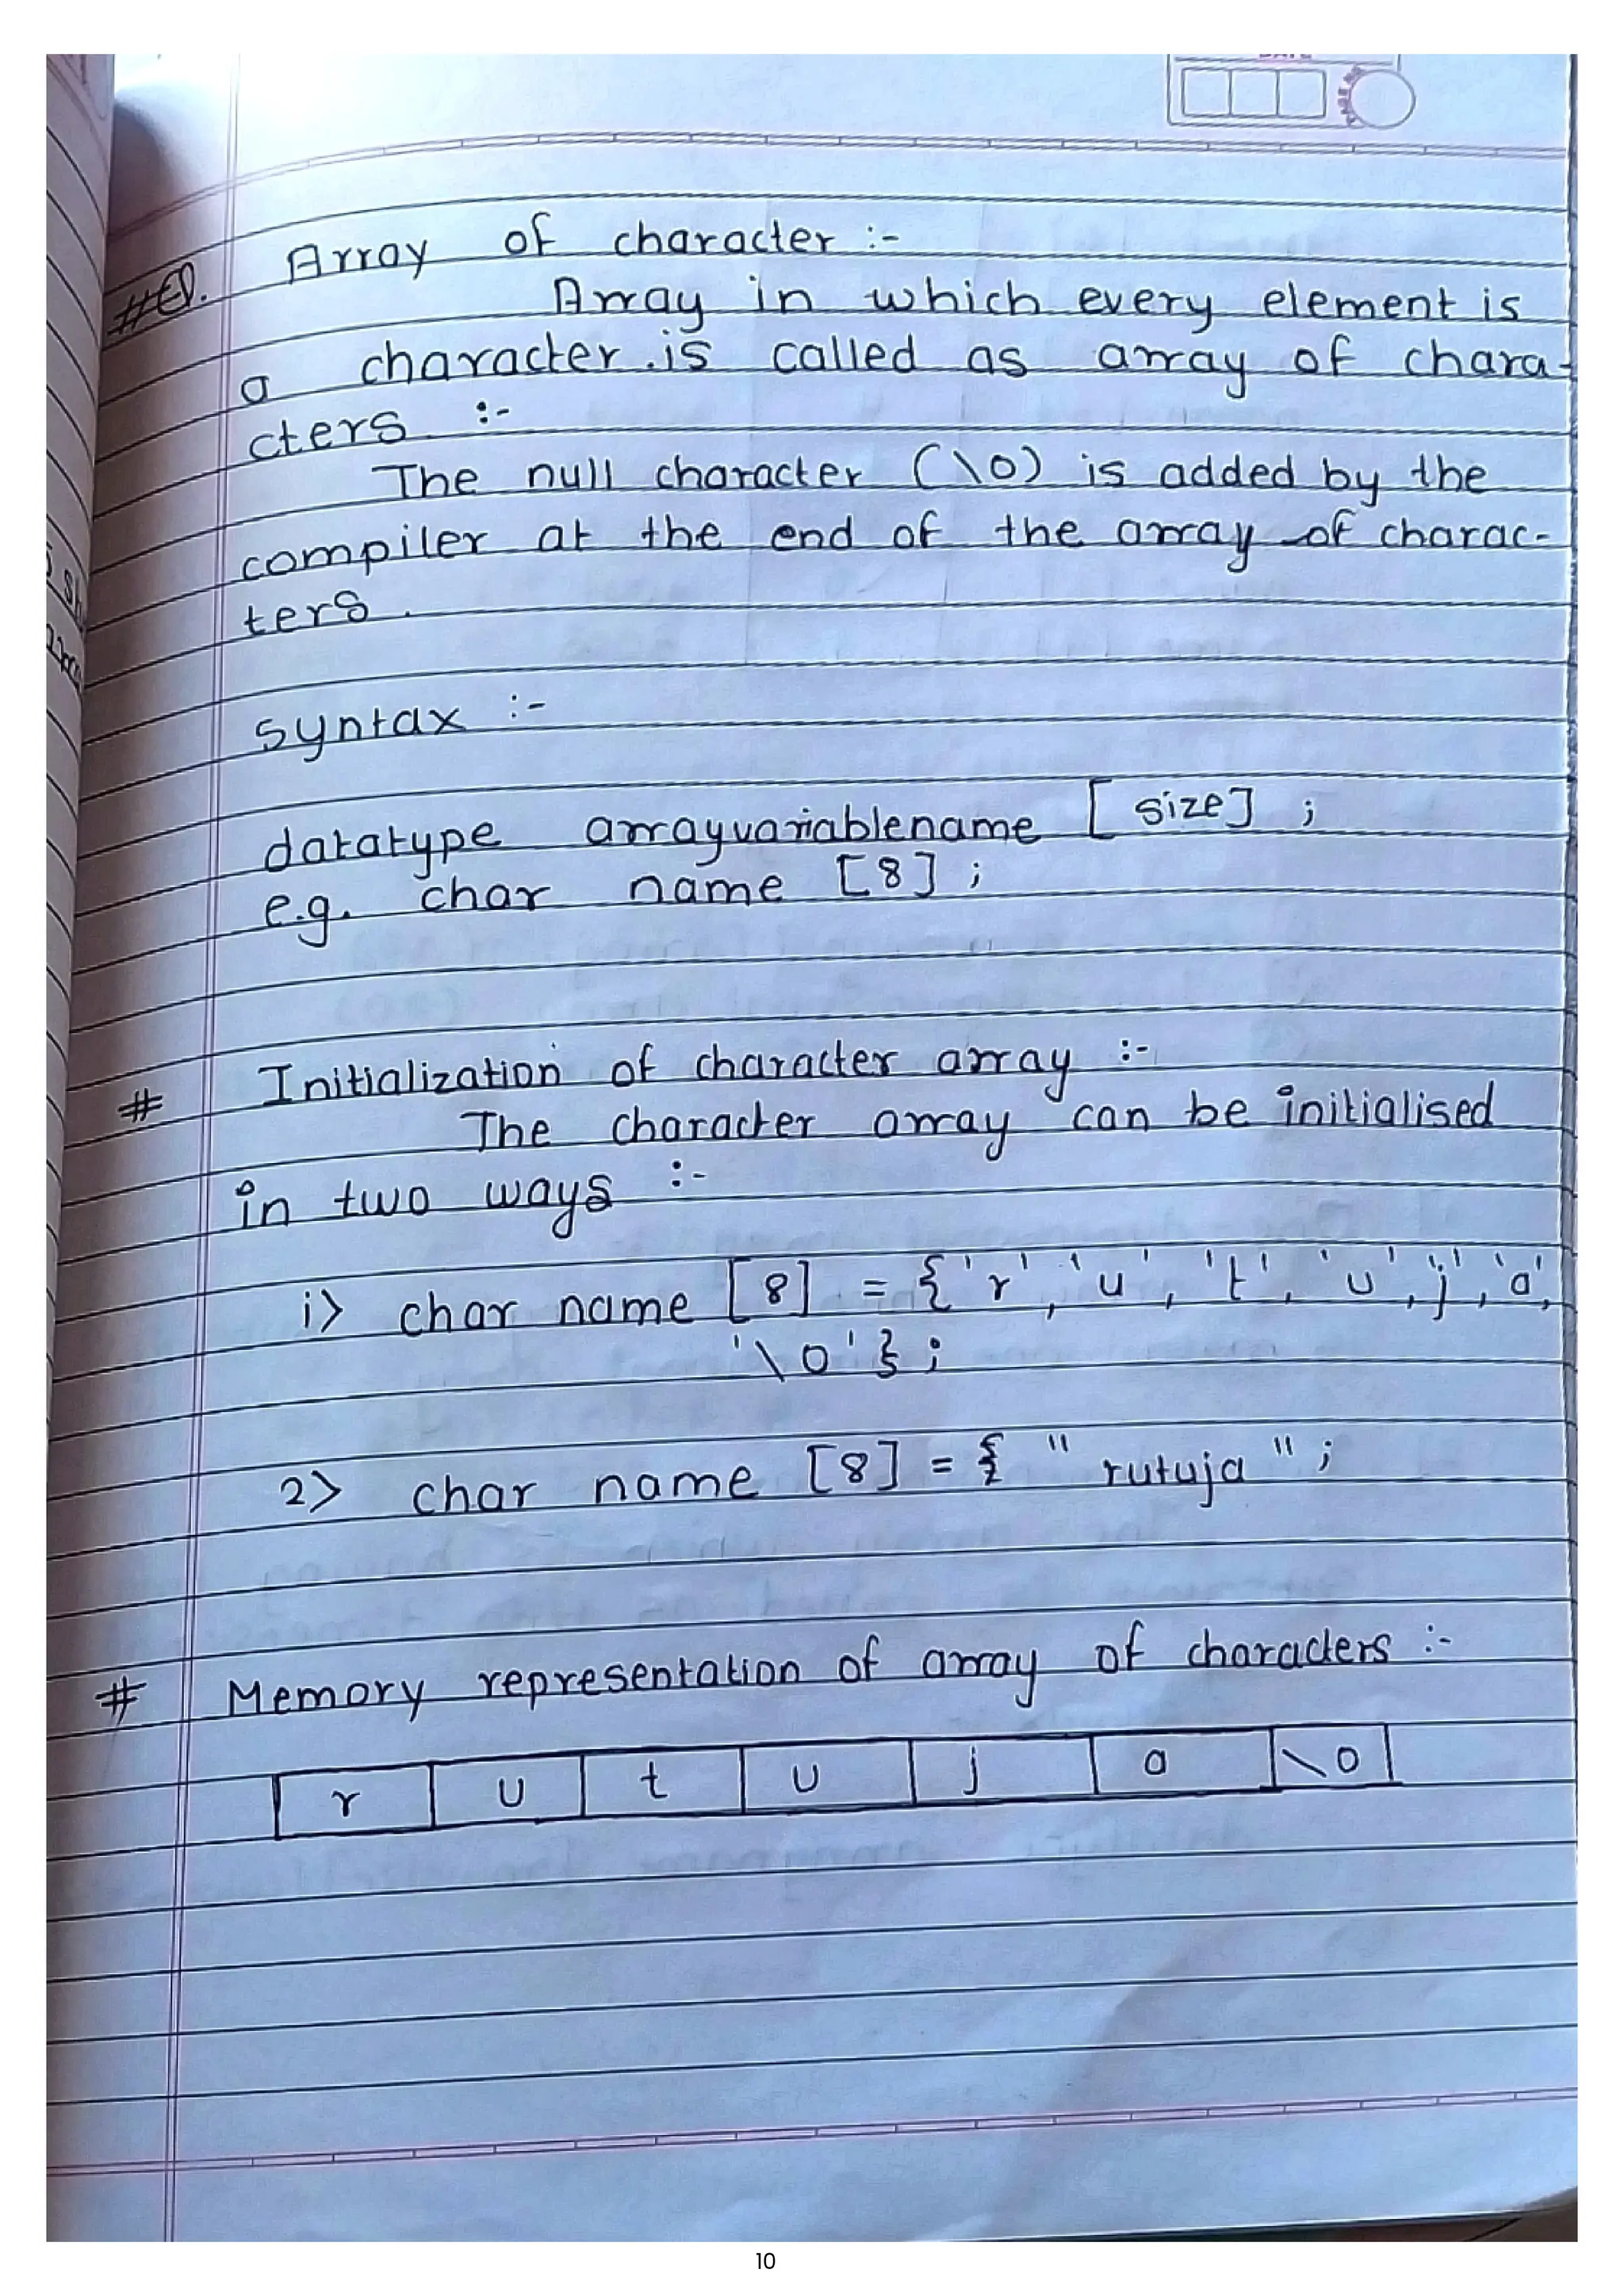 Array of character :-
Array in which every element is
a character.is called as array of chara-
cters :-
The null character (\0) is added by the
compiler at the end of the array of charac-
ters.
syntax :-
datatype arrayvariablename [size] ;
e.g. char name [8] ;
# Initialization of character array :-
The character array can be initialised
in two ways :-
i> char name [8] = {'r', 'u', 't', 'u', 'j', 'a',
'\0'} ;
2> char name [8] = { " rutuja " ;
# Memory representation of array of characters :-
r u t u j a \0
10